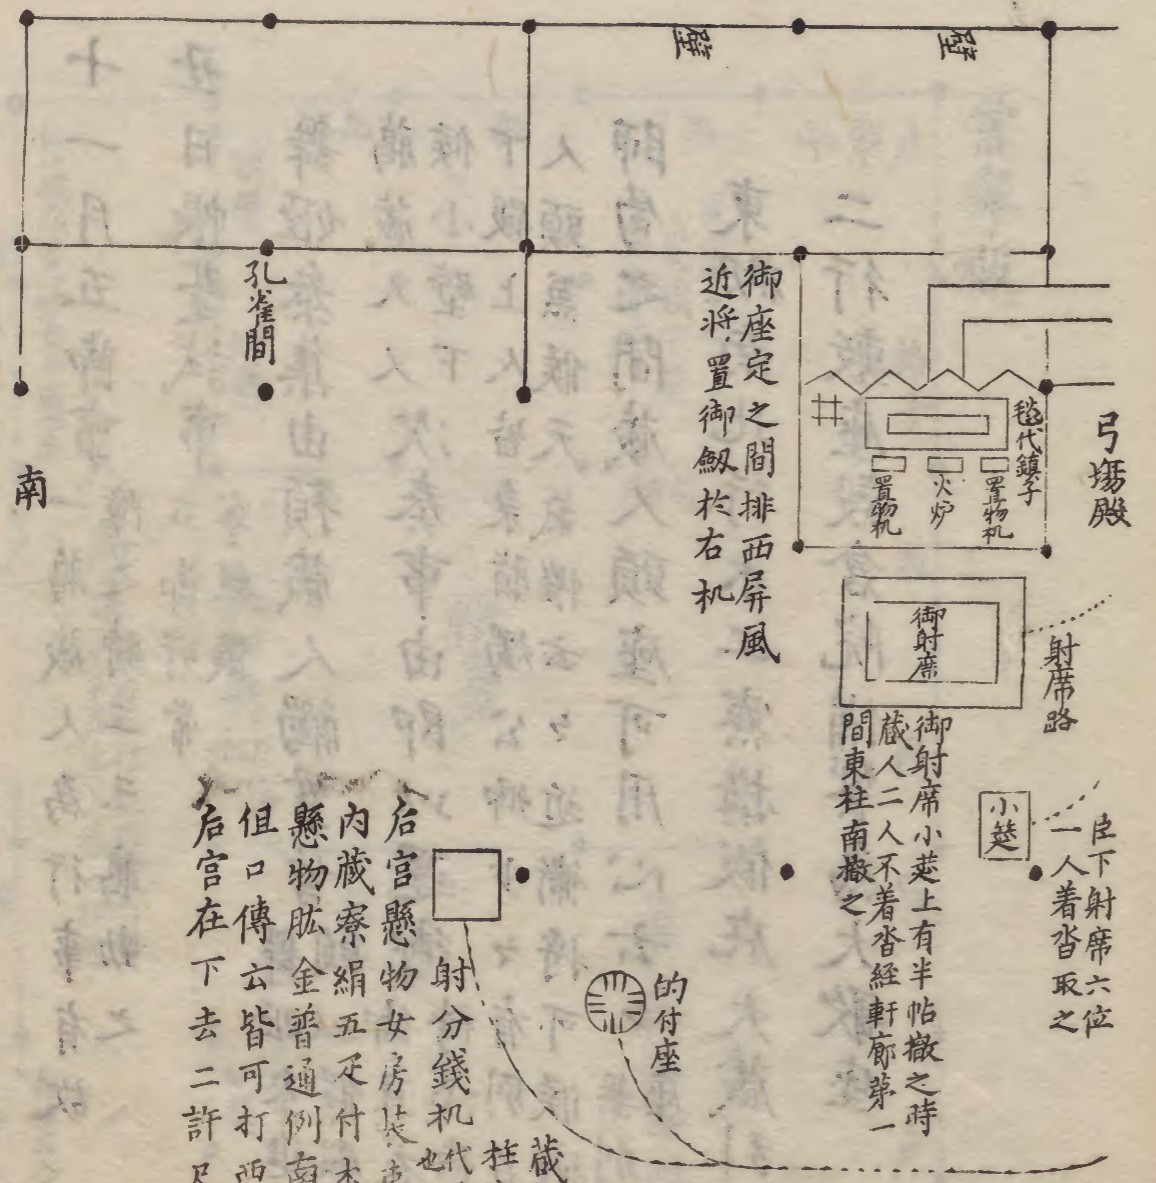 壁
壁
弓場殿
毯代鎮子
置物机
火炉
置物机
御座定之間排西屏風
近将置御劔於右机
孔雀間
南
御射席
射席路
臣下射席六位
一人着沓取之
小莚
御射席小莚上有半帖撤之時
蔵人二人不着沓経軒廊第一
間東柱南撤之
的付座
射分錢机
代
也
蔵
柱
后宮懸物女房
内蔵寮絹五疋付
懸物肱金普通例南
但口傳云皆可打西
后宮在下去二許尺